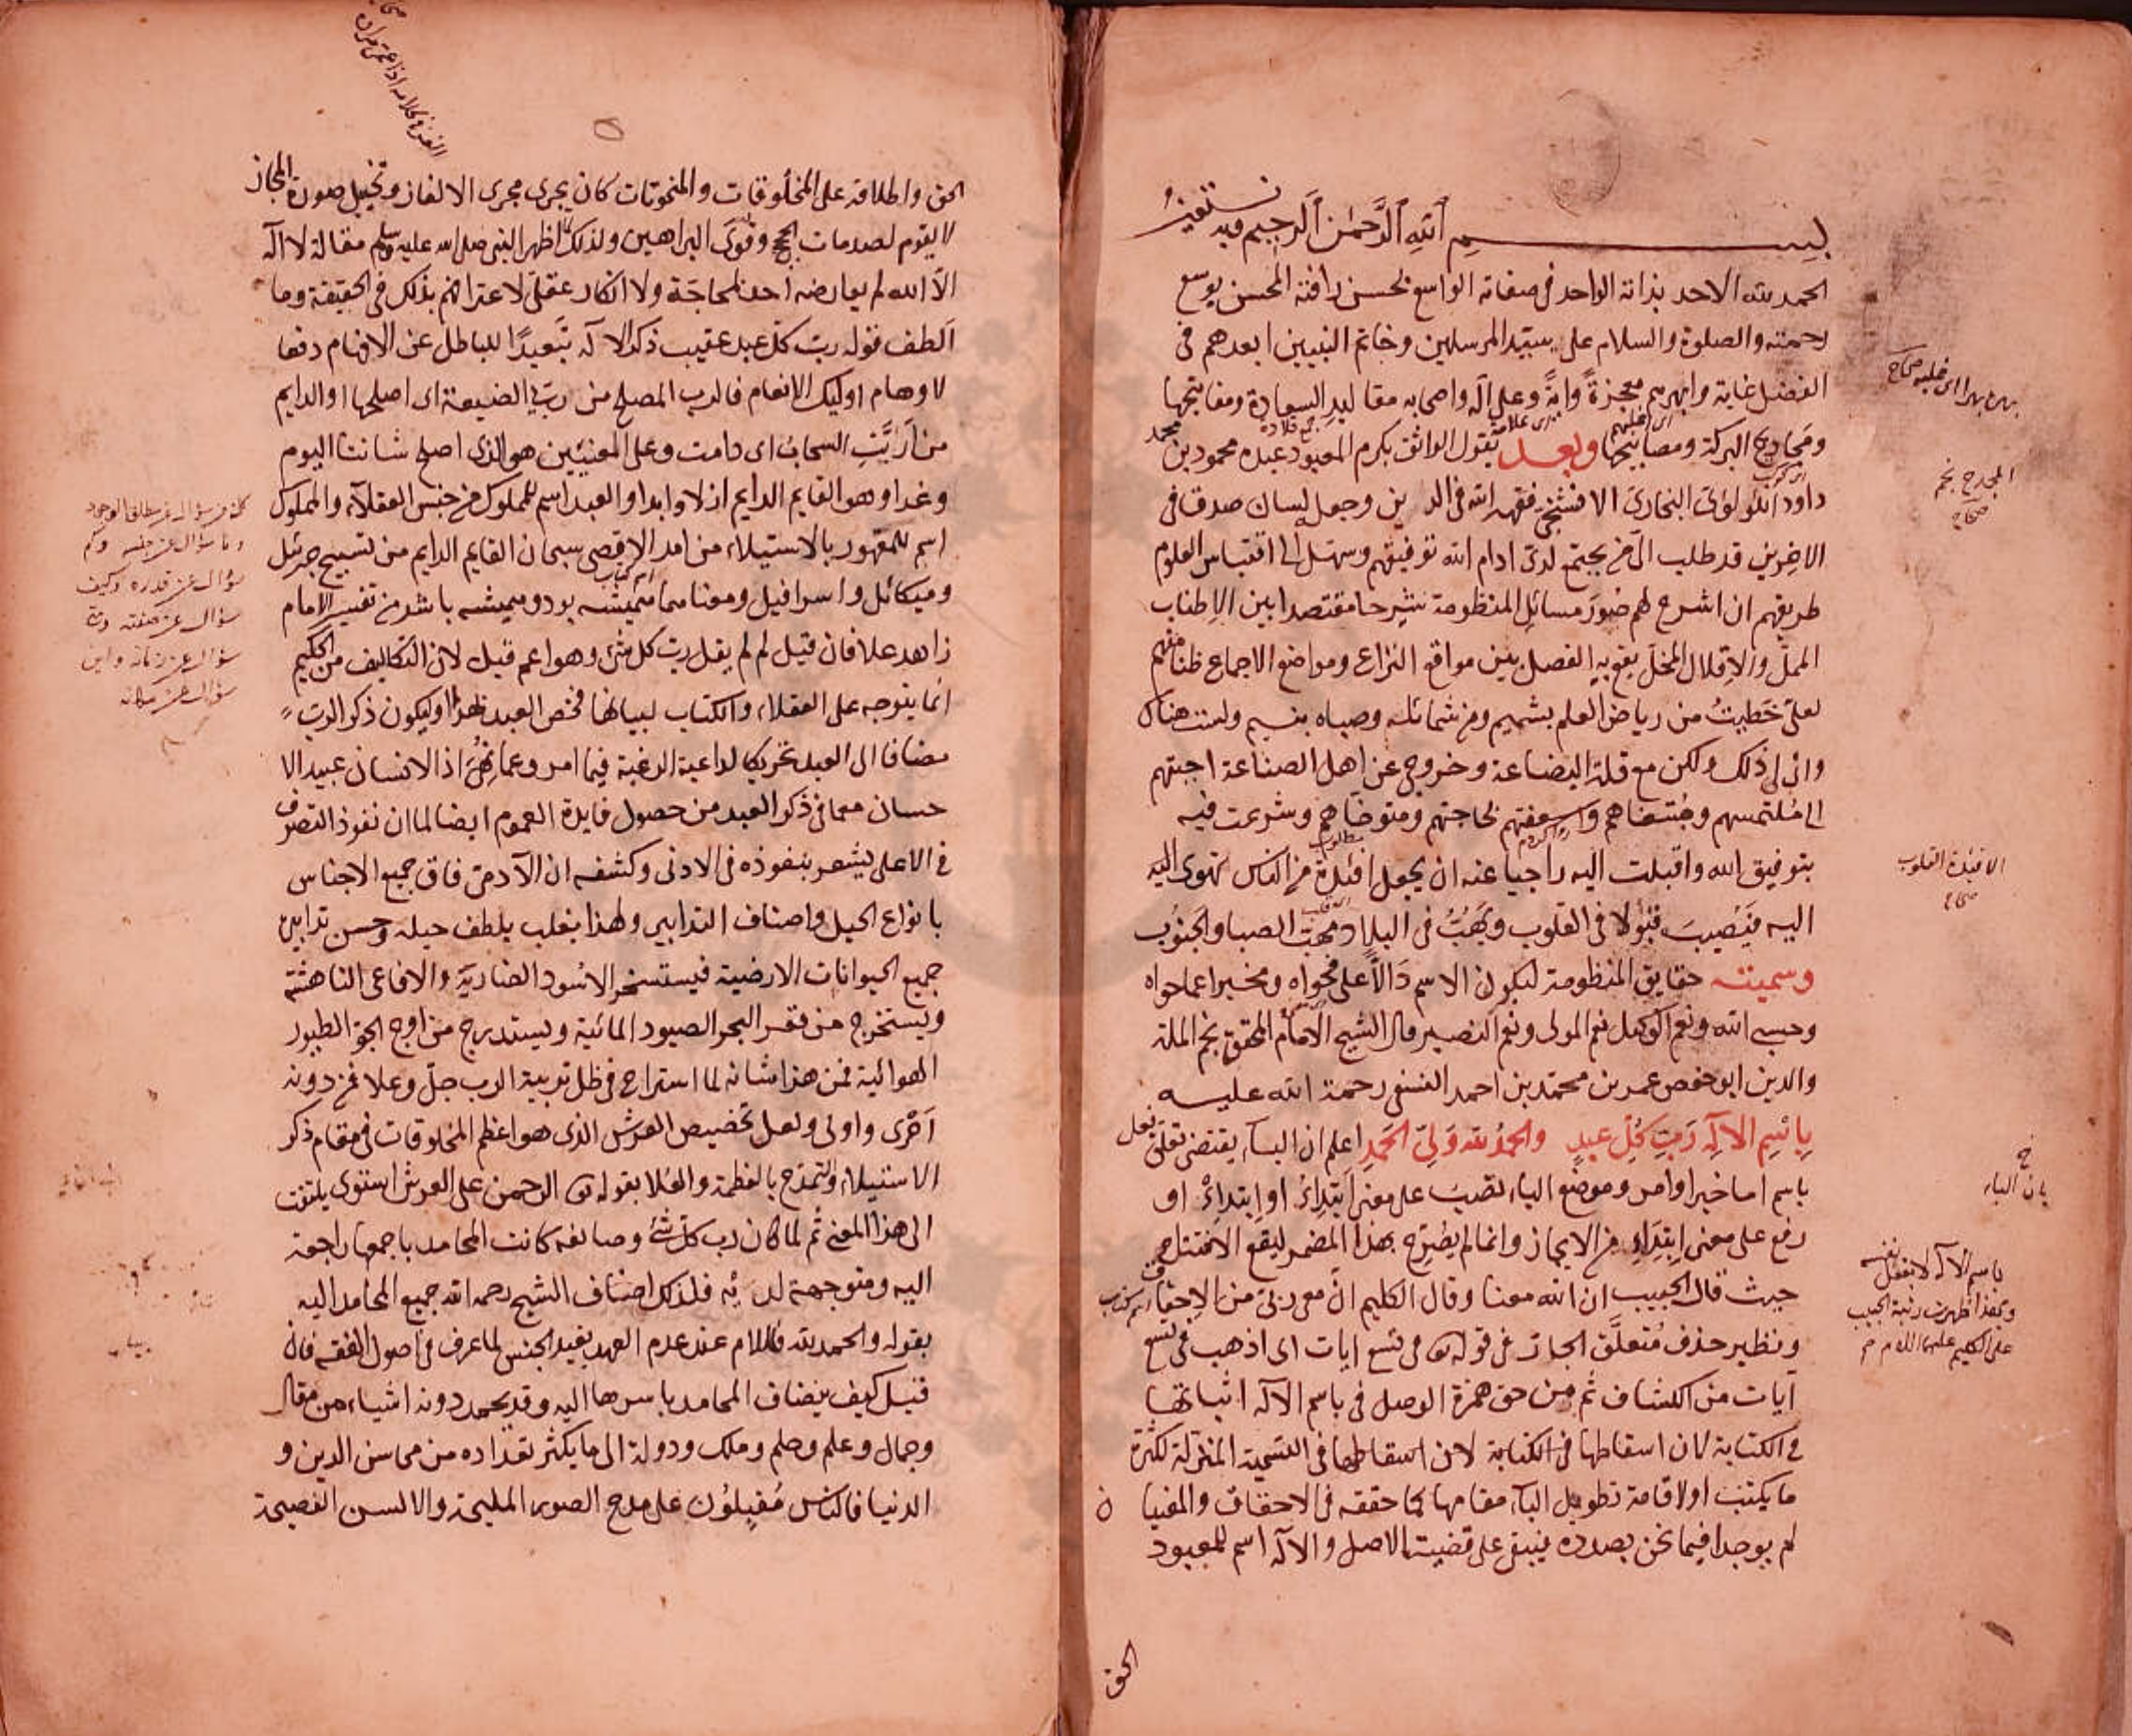 بسم الله الرحمن الرحيم وبه نستعين
الحمد لله الاحد بذاته الواحد في صفاته الواسع بحسن رافته المحسن بوسع
رحمته والصلوة والسلام على سيد المرسلين وخاتم النبيين ابعدهم في
الفضل غاية وابهرهم معجزة واية وعلى آله واصحابه مقاليد السعادة ومفاتيحها
ومجاديح البركة ومصابيحها وبعد يقول الواثق بكرم المعبود عبده محمود بن محمد
داود اللولوي البخاري الافشنجي فقهه الله في الدين وجعل له لسان صدق في
الاخرين قد طلب الي من يجتمع لدي ادام الله توفيقهم وسهل الى اقتباس العلوم
طريقهم ان اشرح لهم صور مسائل المنظومة شرحا مقتصدا بين الاطناب
الممل والاقلال المخل بغوية الفصل بين مواقع النزاع ومواضع الاجماع ظنا منهم
لعلي حظيت من رياض العلم بشميم ومن شمائله وصباه بنسيم ولست هناك
وانى لي ذلك ولكن مع قلة البضاعة وخروجي عن اهل الصناعة اجبتهم
الى ملتمسهم ومبتغاهم واسعفتهم بحاجتهم ومتوخاهم وشرعت فيه
بتوفيق الله واقبلت اليه راجيا عنه ان يجعل افئدة من الناس تهوى اليه
اليه فيصيب قبولا في القلوب ويهب في البلاد مهب الصبا والجنوب
وسميته حقايق المنظومة ليكون الاسم دالا على فحواه ومخبرا عما حواه
وحسبي الله ونعم الوكيل نعم المولى ونعم النصير قال الشيخ الامام المحقق نجم الملة
والدين ابو حفص عمر بن محمد بن احمد النسفي رحمة الله عليه
باسم الاله رب كل عبد والحمد لله ولي الحمد اعلم ان الباء يقتضي تعلق بفعل
باسم اما خبر او امر وموضع الباء نصب على معنى ابتدائ او ابتداء او
رفع على معنى ابتداء من الايجاز وانما لم يصرح بهذا المضمر ليقع الافتتاح
حيث قال الحبيب ان الله معنا وقال الكليم ان معي ربي من الاحقاف
ونظير حذف متعلق الجار في قوله تع في تسع ايات اى اذهب في تسع
آيات من الكشاف ثم من حق همزة الوصل في باسم الاله اثباتها
في الكتابة لان اسقاطها في الكتابة لان اسقاطها في التسمية المنزلة لكثرة
ما يكتب او لاقامة تطويل الباء مقامها كما حققه في الاحقاف والمغيا
لم يوجدا فيما نحن بصدده فيبقى على قضية الاصل والاله اسم للمعبود
الحق
المجدح نجم
صحاح
الافئدة القلوب
صحاح
باسم الاله لا بفعل نفسه
وبهذا ظهرت رتبة الحبيب
على الكليم عليهما السلام
الحق واطلاقه على المخلوقات والمنحوتات كان يجرى مجرى الالغاز وتخييل صورة المجاز
لا يقوم لصدمات الحجج وقوى البراهين ولذلك لما اظهر النبي صلى الله عليه وسلم مقالة لا اله
الا الله لم يعارضه احد لمحاجة ولا انكار عقلي لاعترافهم بذلك في الحقيقة وما
الطف قوله رب كل عبد عقيب ذكر الاله تبعيدا للباطل عن الافهام دفعا
لاوهام اوليك الانعام فالرب المصلح من رب الضيعة اى اصلحها او الدايم
من اربت السحاب اى دامت وعلى المعنيين هو الذى اصلح شاننا اليوم
وغدا وهو القايم الدايم ازلا وابدا والعبد اسم للمملوك من جنس العقلاء والمملوك
اسم للمقهور بالاستيلاء من امد الاقصى سبحان القايم الدايم من تسبيح جبرئل
وميكائل واسرافيل ومعناهما هميشه بود وهميشه باشد من تفسير الامام
زاهد علا فان قيل لم لم يقل رب كل شئ وهو اعم قيل لان التكاليف من الحكيم
انما يتوجه على العقلاء والكتاب لبيانها فخص العبد بهذا او ليكون ذكر الرب
مضافا الى العبد تحريكا لداعية الرغبة فيما امر وعما نهى اذ الانسان عبيد الا
حسان مع ما في ذكر العبد من حصول فايدة العموم ايضا لما ان نفوذ التصرف
في الاعلى يشعر بنفوذه في الادنى وكشفه ان الآدمي فاق جميع الاجناس
بانواع الحيل واصناف التدابير ولهذا يغلب بلطف حيله وحسن تدابيره
جميع الحيوانات الارضية فيستسخر الاسود الضارية والافاعى الناهشة
ويستخرج من قعر البحر الصيود المائية ويستدرج من اوج الجو الطيور
الهوائية فمن هذا شانه لما استراح في ظل تربية الرب جل وعلا فمن دونه
احرى واولى ولعل تخصيص العرش الذى هو اعظم المخلوقات في مقام ذكر
الاستيلاء والتمدح بالعظمة والعلا بقوله تع الرحمن على العرش استوى يلتفت
الى هذا المعنى ثم لما كان رب كل شئ وصانعه كانت المحامد باجمعها راجعة
اليه ومتوجهة لديه فلذلك اضاف الشيخ رحمه الله جميع المحامد اليه
بقوله والحمد لله فاللام عند عدم العهد يفيد الجنس لما عرف في اصول الفقه فان
قيل كيف يضاف المحامد باسرها اليه وقد يحمد دونه اشياء من مقال
وجمال وعلم وحلم وملك ودولة الى ما يكثر تعداده من محاسن الدين و
الدنيا فالناس مقبلون على مدح الصور المليحة والالسن الفصيحة